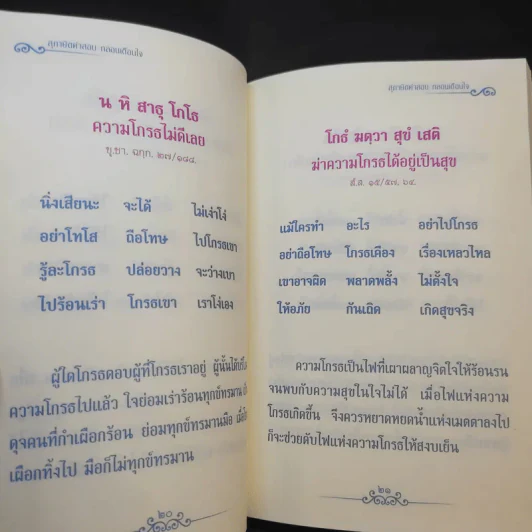 สุภาษิตคำสอน กลอนเตือนใจ
น หิ สาธุ โกโธ
ความโกรธไม่ดีเลย
ขุ.ชา. ฉกฺก. ๒๗/๑๘๔
นิ่งเสียนะ จะได้ ไม่เง่าโง่
อย่าโทโส ถือโทษ ไปโกรธเขา
รู้ละโกรธ ปล่อยวาง จะว่างเบา
ไปร้อนเร่า โกรธเขา เราโง่เอง
ผู้ใดโกรธตอบผู้ที่โกรธเราอยู่ ผู้นั้นได้
ความโกรธไปแล้ว ใจย่อมเร่าร้อนทุกข์ทรมาน
ดุจคนที่กำเผือกร้อน ย่อมทุกข์ทรมานมือ
เผือกทิ้งไป มือก็ไม่ทุกข์ทรมาน
๒๐
สุภาษิตคำสอน กลอนเตือนใจ
โกธํ ฆตฺวา สุขํ เสติ
ฆ่าความโกรธได้อยู่เป็นสุข
สํ.ส. ๑๕/๕๗, ๖๔.
แม้ใครทำ อะไร อย่าไปโกรธ
อย่าถือโทษ โกรธเคือง เรื่องเหลวไหล
เขาอาจผิด พลาดพลั้ง ไม่ตั้งใจ
ให้อภัย กันเถิด เกิดสุขจริง
ความโกรธเป็นไฟที่เผาผลาญจิตใจให้ร้อนรน
จนพบกับความสุขในใจไม่ได้ เมื่อไฟแห่งความ
โกรธเกิดขึ้น จึงควรหยาดหยดน้ำแห่งเมตตาลงไป
ก็จะช่วยดับไฟแห่งความโกรธให้สงบเย็น
๒๑